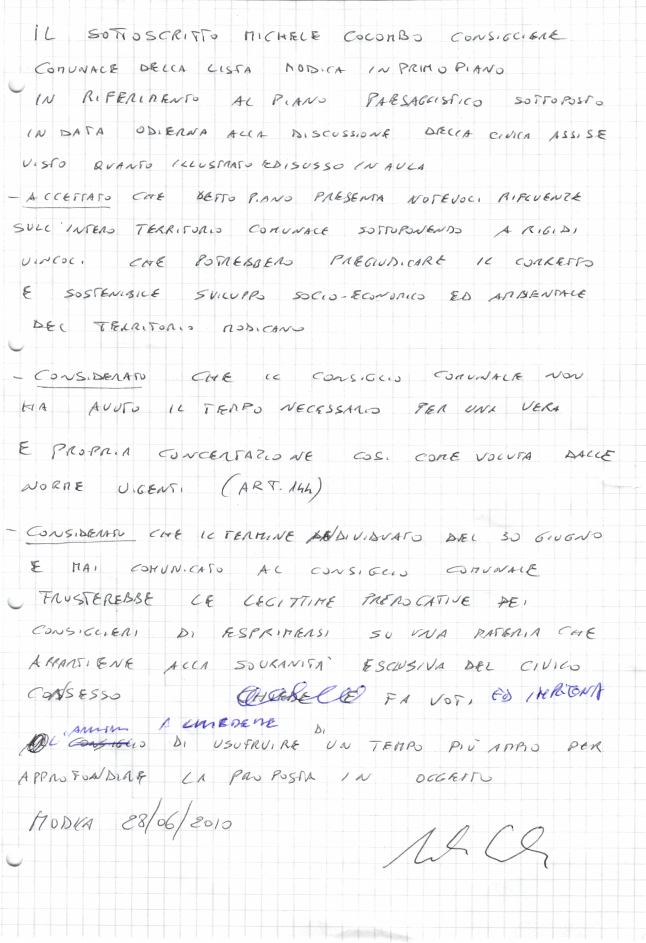 IL SOTTOSCRITTO MICHELE COLOMBO CONSIGLIERE
COMUNALE DELLA LISTA MODICA IN PRIMO PIANO
IN RIFERIMENTO AL PIANO PAESAGGISTICO SOTTOPOSTO
IN DATA ODIERNA ALLA DISCUSSIONE DELLA CIVICA ASSISE
VISTO QUANTO ILLUSTRATO E DISUSSO IN AULA
- ACCETTATO CHE DETTO PIANO PRESENTA NOTEVOLI RIFLUENZE
SULL'INTERO TERRITORIO COMUNALE SOTTOPONENDO A RIGIDI
VINCOLI CHE POTREBBERO PREGIUDICARE IL CORRETTO
E SOSTENIBILE SVILUPPO SOCIO-ECONOMICO ED AMBIENTALE
DEL TERRITORIO MODICANO
- CONSIDERATO CHE IL CONSIGLIO COMUNALE NON
HA AVUTO IL TEMPO NECESSARIO PER UNA VERA
E PROPRIA CONCERTAZIONE COSI COME VOLUTA DALLE
NORME VIGENTI (ART. 144)
- CONSIDERATO CHE IL TERMINE INDIVIDUATO DEL 30 GIUGNO
E MAI COMUNICATO AL CONSIGLIO COMUNALE
FRUSTEREBBE LE LEGITTIME PREROGATIVE DEI
CONSIGLIERI DI ESPRIMERSI SU UNA MATERIA CHE
APPARTIENE ALLA SOVRANITA' ESCLUSIVA DEL CIVICO
CONSESSO FA VOTI ED IMPEGNA
L'AMM.NE A CHIEDERE DI
DI USUFRUIRE UN TEMPO PIÙ AMPIO PER
APPROFONDIRE LA PROPOSTA IN OGGETTO
MODICA 28/06/2010